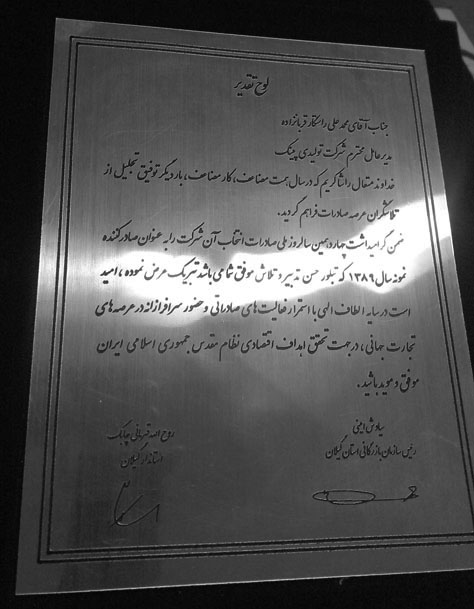 لوح تقدیر
جناب آقای محمد علی راستکار قربانزاده
مدیر عامل محترم شرکت تولیدی پینک
خداوند متعال را شاکریم که در سال همت مضاعف، کار مضاعف، بار دیگر توفیق تجلیل از
تلاشگران عرصه صادرات فراهم گردید.
ضمن گرامیداشت چهاردهمین سالروز ملی صادرات انتخاب آن شرکت را به عنوان صادر کننده
نمونه سال ۱۳۸۹ که تبلور حسن تدبیر و تلاش موفق شما می باشد تبریک عرض نموده ، امید
است در سایه الطاف الهی با استمرار فعالیت های صادراتی و حضور سرافرازانه در عرصه های
تجارت جهانی ، در جهت تحقق اهداف اقتصادی نظام مقدس جمهوری اسلامی ایران
موفق و موید باشید.
سیاوش امینی
رئیس سازمان بازرگانی استان گیلان
روح اله قهرمانی چابک
استاندار گیلان